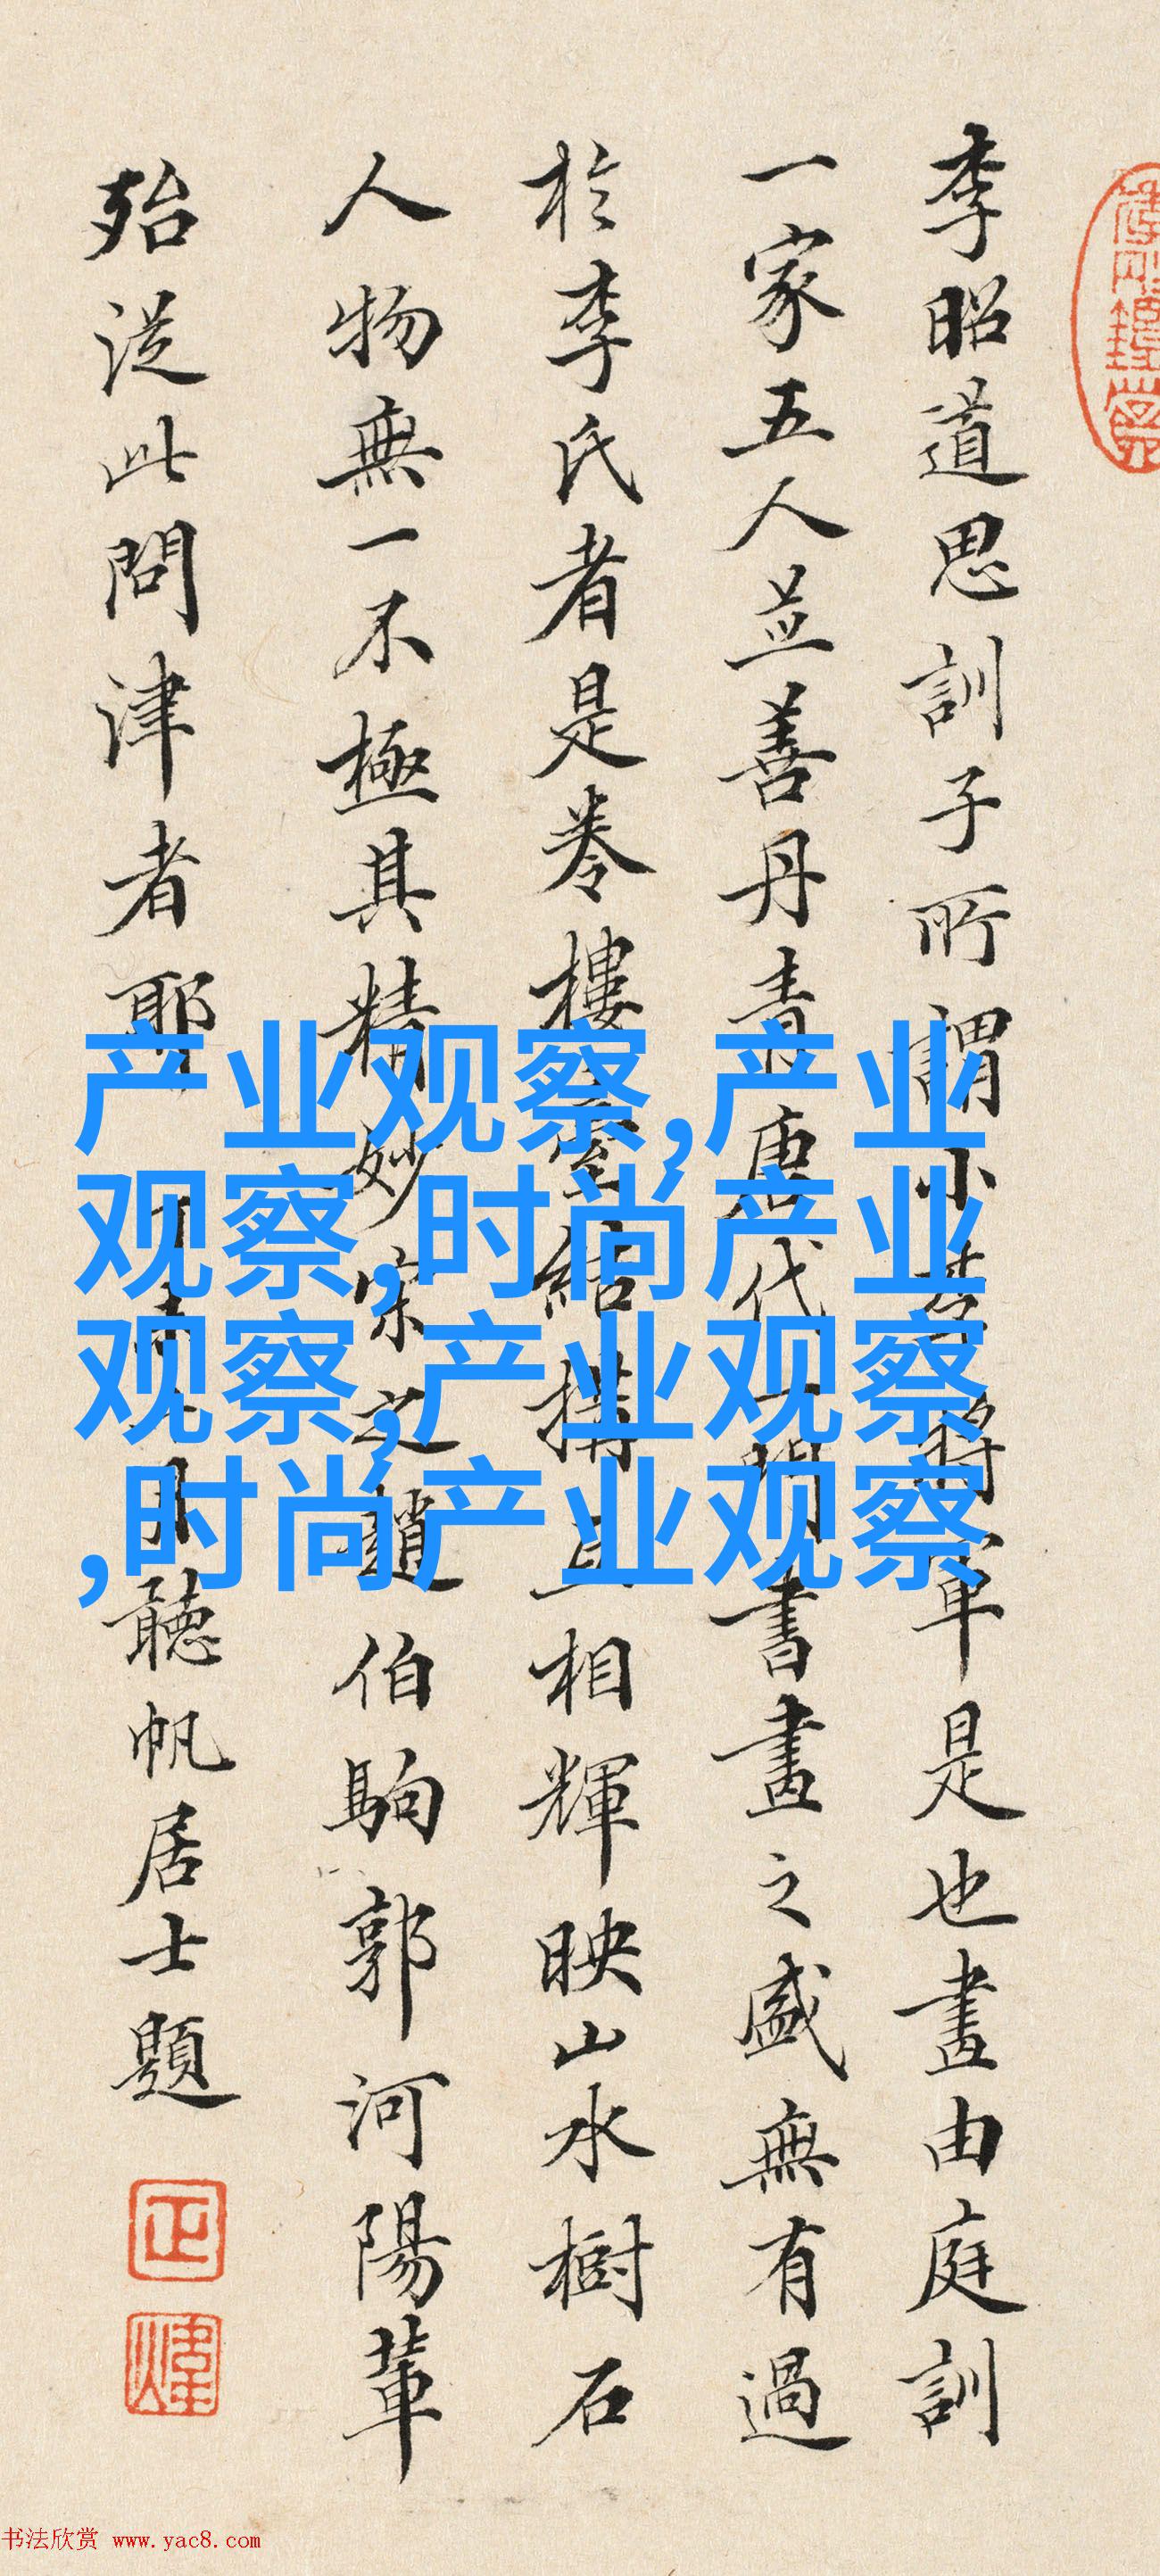 李昭道思訓子所謂小將軍是也畫由庭訓
一家五人並善丹青唐代一門書畫之盛無有過
於李氏者是卷樓臺結構互相輝映山水樹石
人物無一不極其精妙宋之趙伯駒郭河陽輩
殆從此問津者耶
月聽帆居士題
正
煒
产业观察,产业
观察,时尚产业
观察,产业观察
,时尚产业观察
书法欣赏 www.yac8.com